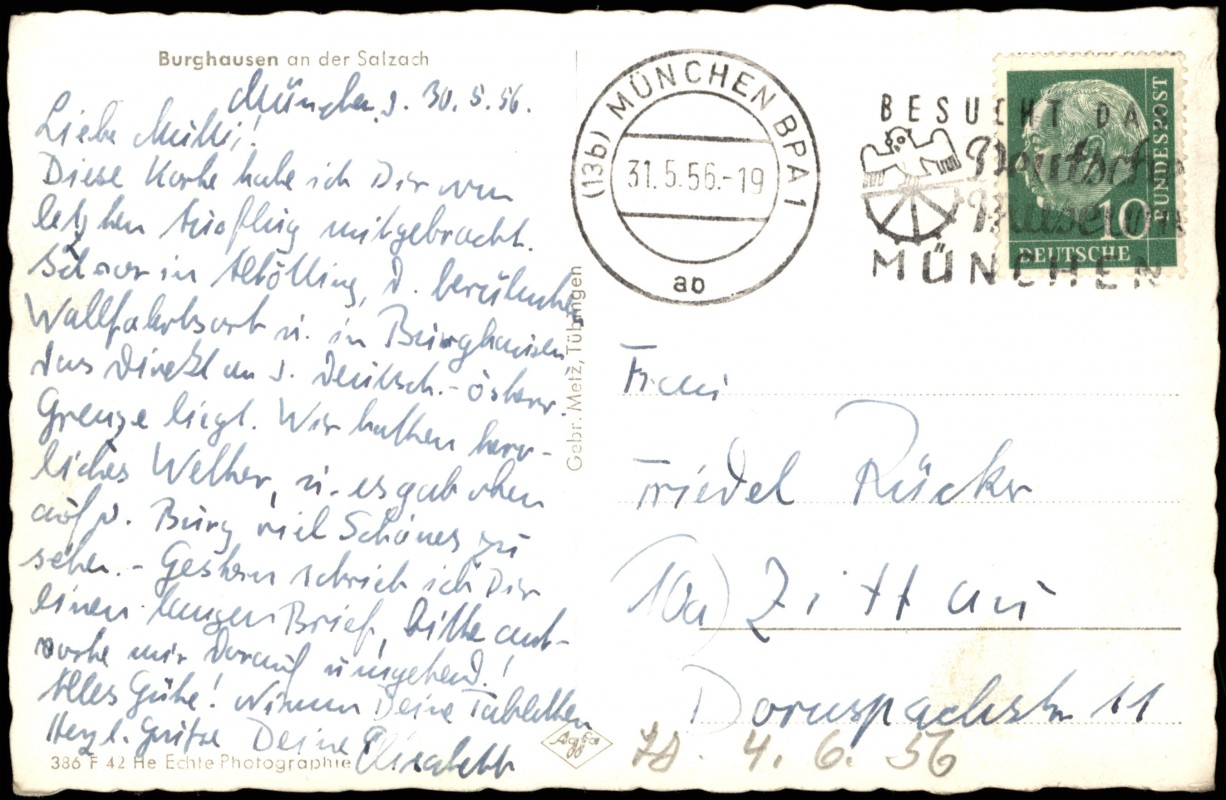 Burghausen an der Salzach
München, d. 30.5.56.
Liebe Mutti!
Diese Karte habe ich Dir vom
letzten Ausflug mitgebracht.
Es war in Altötting, d. berühmten
Wallfahrtsort u. in Burghausen,
das direkt an d. Deutsch.-Österr.
Grenze liegt. Wir hatten herr-
liches Wetter, u. es gab oben
auf d. Burg viel Schönes zu
sehen. - Gestern schrieb ich Dir
einen langen Brief, bitte ant-
worte mir darauf umgehend!
Alles Gute! Nimm Deine Tabletten
Herzl. Grüße Deine Elisabeth
386 F 42 He Echte Photographie
Agfa
Gebr. Metz, Tübingen
(13b) MÜNCHEN BPA 1
31.5.56.-19
ab
BESUCHT DA
Deutsche
Museum
MÜNCHEN
DEUTSCHE
BUNDESPOST
10
Frau
Friedel Rücker
(10a) Zittau
Dornspachstr 11
4. 6. 56